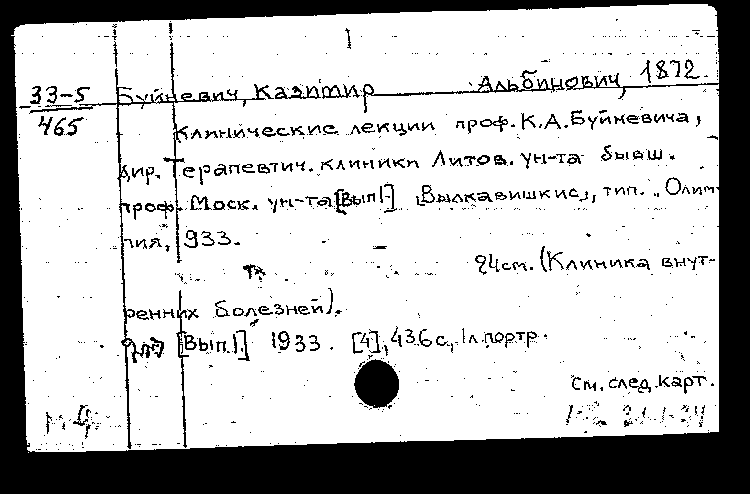 33-5 Буйневич, Казимир Альбинович, 1872.
465 Клинические лекции проф. К.А. Буйневича,
дир. Терапевтич. клиники Литов. ун-та бывш.
проф. Моск. ун-та [Вып 1-] [Вылкавишкис], тип. „Олим-
пия, 1933.
24см. (Клиника внут-
ренних болезней).
[Вып 1.] 1933. [4], 436с., 1л.портр.
См. след. карт.